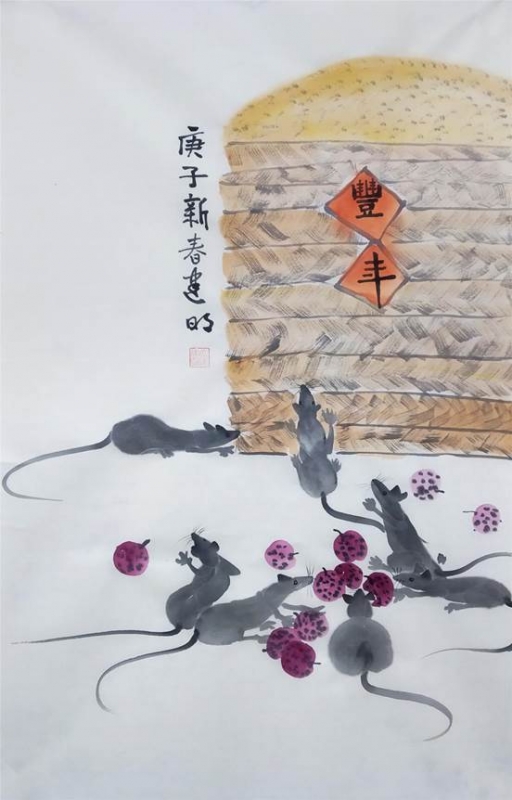 庚子新春建明
豐
年